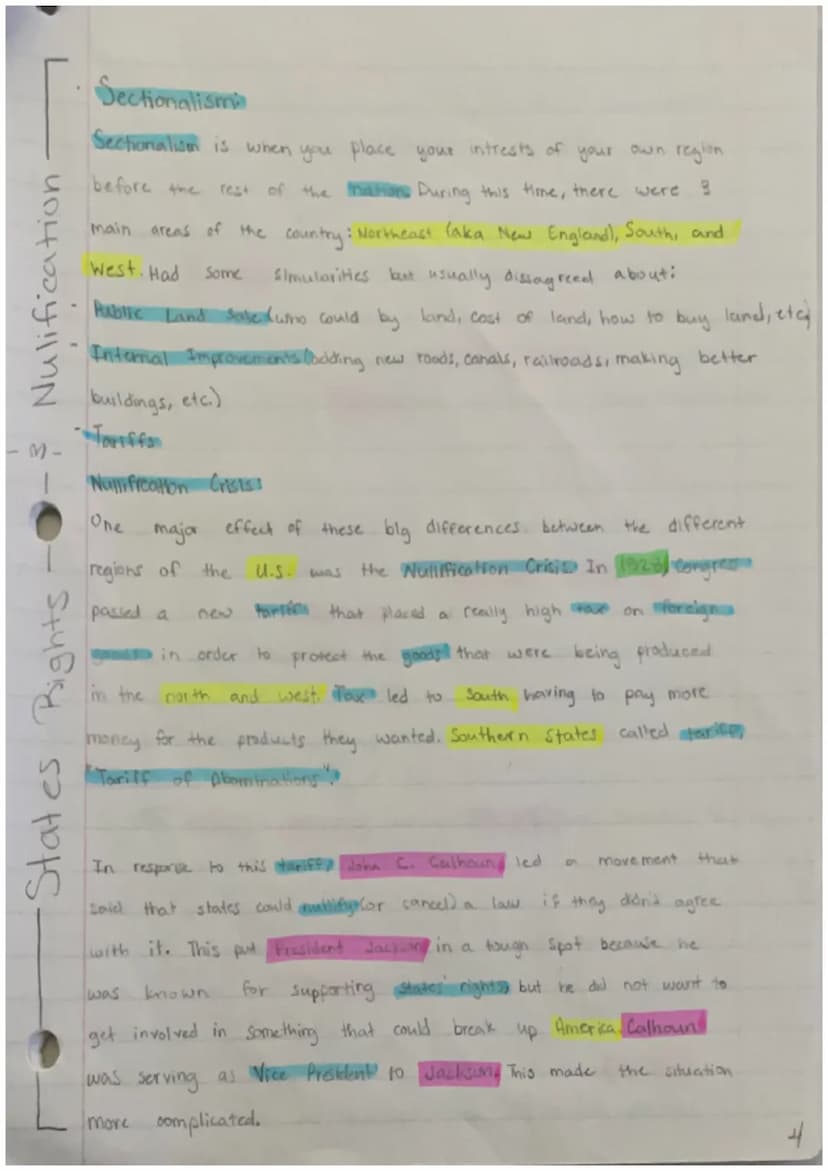 States Rights - & - Nulification
Sectionalism:
Sectionalism is when you place your intrests of your own region
before the rest of the nation. During this time, there were 3
main areas of the country: Northeast (aka New England), South, and
West. Had some simularities but usually dissagreed about:
· Public Land Sale (who could by land, cost of land, how to buy land, etc)
· Internal Improvements (adding new roads, canals, railroads, making better
buildings, etc.)
· Tariffs
Nullification Crisis:
One major effect of these big differences between the different
regions of the U.S. was the Nullification Crisis. In 1828, Congress
passed a new tariff that placed a really high tax on foreign
goods in order to protect the goods that were being produced
in the north and west. Tax led to South having to pay more
money for the products they wanted. Southern States called tariff,
"Tariff of Abominations".
In response to this tariff, John C. Calhoun, led a movement that
said that states could nullify (or cancel) a law if they didn't agree
with it. This put President Jackson in a tough spot because he
was known for supporting states' rights, but he did not want to
get involved in something that could break up America. Calhoun
was serving as Vice President to Jackson. This made the situation
more complicated.
4